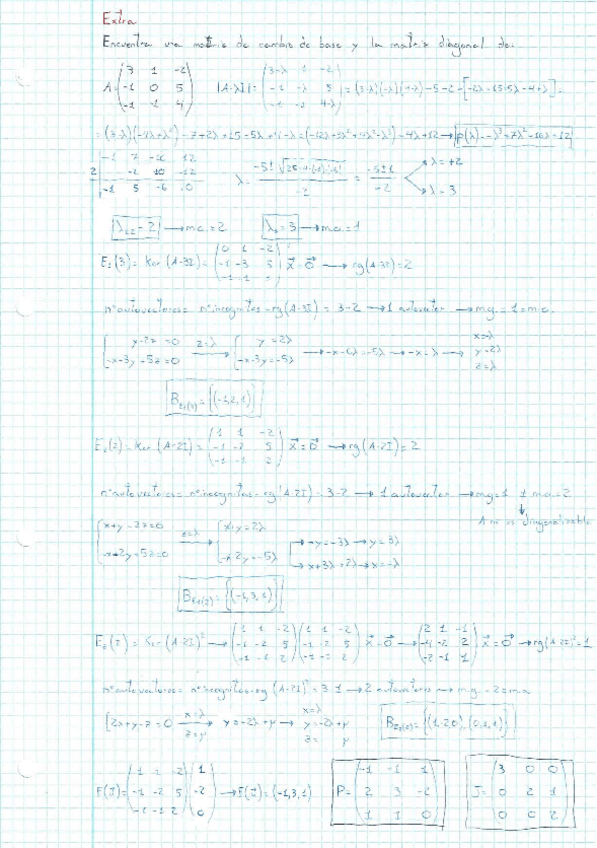 Extra
Encuentra una matriz de cambio de base y la matriz diagonal de:
A = (3 1 -2; -1 0 5; -1 -1 4) |A-λI| = (3-λ 1 -2; -1 -λ 5; -1 -1 4-λ) = (3-λ)(-λ)(4-λ) -5 -2 - [-2λ -15+5λ -4+λ] =
= (3-λ)(-4λ+λ²) -7+2λ+15-5λ+4-λ = (-12λ+3λ²+4λ²-λ³) -4λ+12 → p(λ) = -λ³+7λ²-16λ+12
-1 7 -16 12
2 -2 10 -12
-1 5 -6 0
λ = = -5±1 / -2 λ = +2
λ = 3
λ₁,₂ = 2 → m.a. = 2 λ₃ = 3 → m.a. = 1
E₁(3) = Ker (A-3I) = (0 1 -2; -1 -3 5; -1 -1 1) x⃗ = 0⃗ → rg(A-3I) = 2
nº autovectores = nº incognitas - rg(A-3I) = 3-2 → 1 autovector → m.g. = 1 = m.a.
y-2z=0 z=λ y=2λ → -x-6λ=-5λ → -x=λ → x=-λ
-x-3y+5z=0 -x-3y=-5λ y=2λ
z=λ
B E₁(3) = {(-1,2,1)}
E₁(2) = Ker (A-2I) = (1 1 -2; -1 -2 5; -1 -1 2) x⃗ = 0⃗ → rg(A-2I) = 2
nº autovectores = nº incognitas - rg(A-2I) = 3-2 → 1 autovector → m.g. = 1 ≠ m.a. = 2
A no es diagonalizable
x+y-2z=0 z=λ x+y=2λ → -y=-3λ → y=3λ
-x-2y+5z=0 -x-2y=-5λ → x+3λ=2λ → x=-λ
B E₁(2) = {(-1,3,1)}
E₂(2) = Ker (A-2I)² → (1 1 -2; -1 -2 5; -1 -1 2)(1 1 -2; -1 -2 5; -1 -1 2) x⃗ = 0⃗ → (2 1 -1; -4 -2 2; -2 -1 1) x⃗ = 0⃗ → rg(A-2I)² = 1
nº autovectores = nº incognitas - rg(A-2I)² = 3-1 → 2 autovectores → m.g. = 2 = m.a.
2x+y-z=0 x=λ z=μ → y=-2λ+μ → x=λ y=-2λ+μ z= μ B E₂(2) = {(1,-2,0), (0,1,1)}
= (1 1 -2; -1 -2 5; -1 -1 2)(1; -2; 0) → = (-1,3,1) P = (-1 -1 1; 2 3 -2; 1 1 0) J = (3 0 0; 0 2 1; 0 0 2)